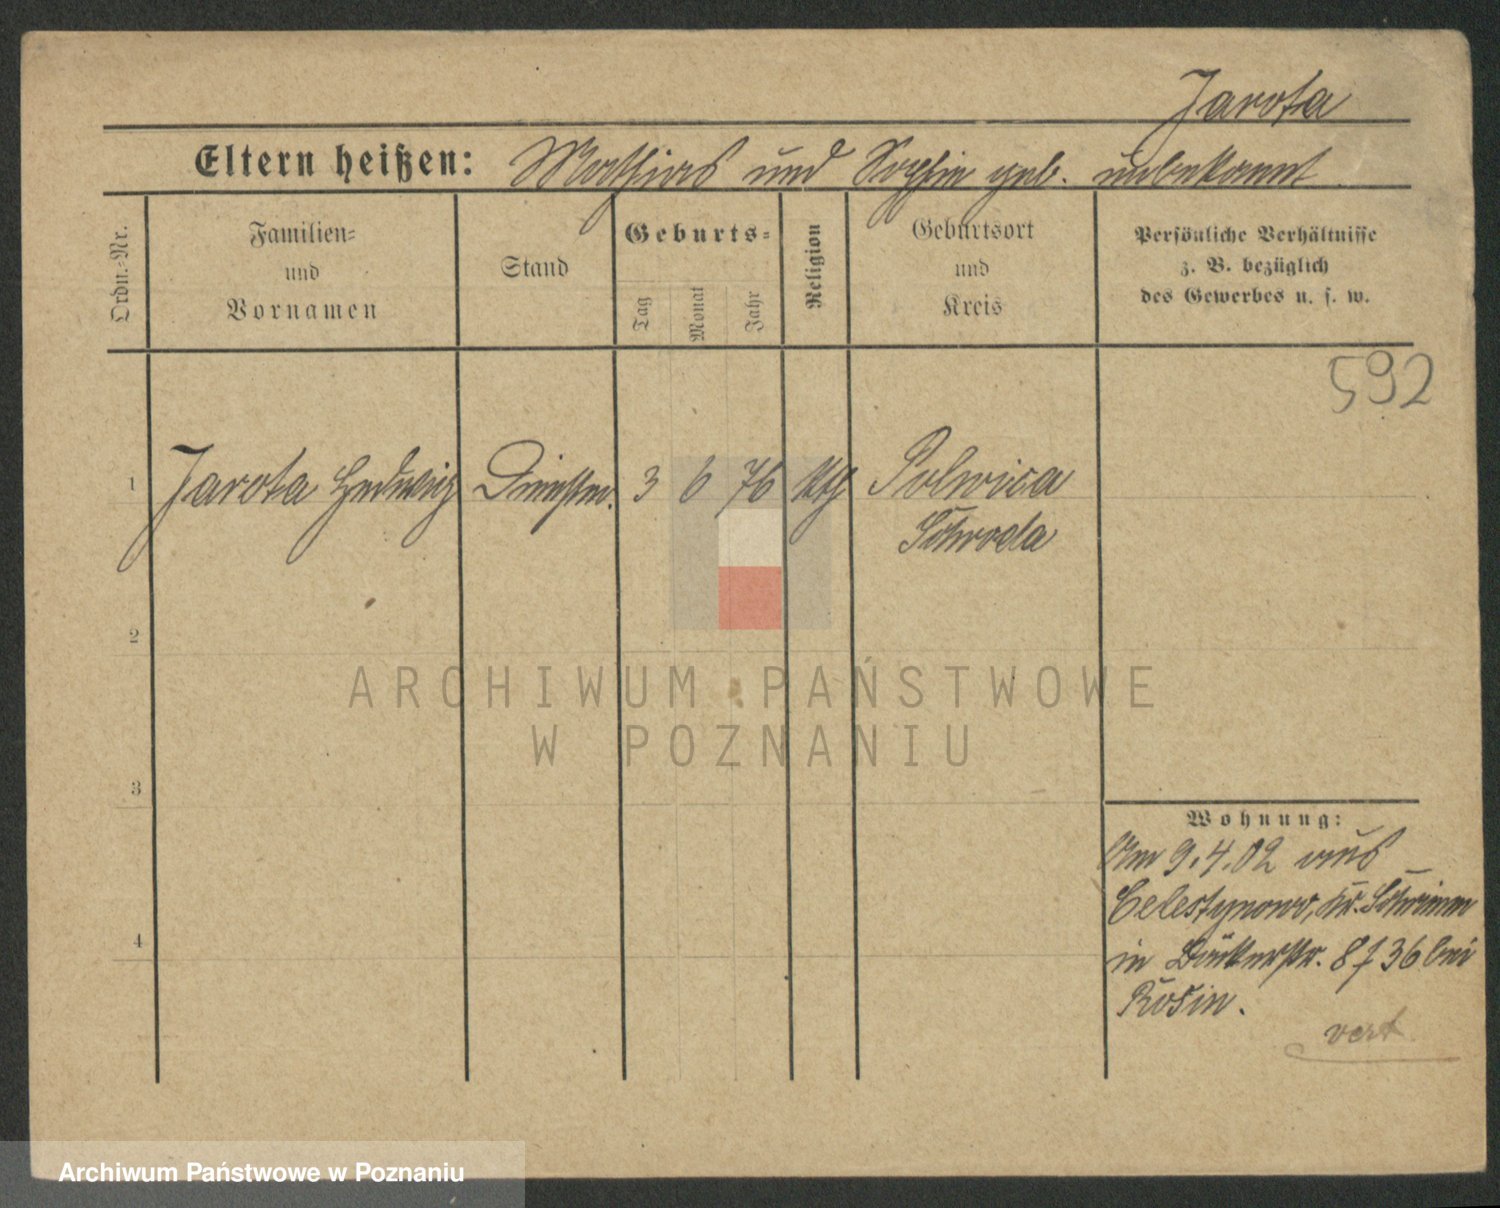 Jarota
Eltern heißen: Mathias und Sophia geb. unbekannt
Ordn.-Nr.
Familien-
und
Vornamen
Stand
Geburts-
Tag
Monat
Jahr
Religion
Geburtsort
und
Kreis
Persönliche Verhältnisse
z. B. bezüglich
des Gewerbes u. s. w.
592
1 Jarota Hedwig Dienstm. 3 6 76 kth Polwica
Schroda
2
3
4
Wohnung:
Am 9.4.02 aus
Celestynowo, Kr. Schrimm
in Bäckerstr. 8 36 bei
Rosin.
vert
ARCHIWUM PAŃSTWOWE
W POZNANIU
Archiwum Państwowe w Poznaniu